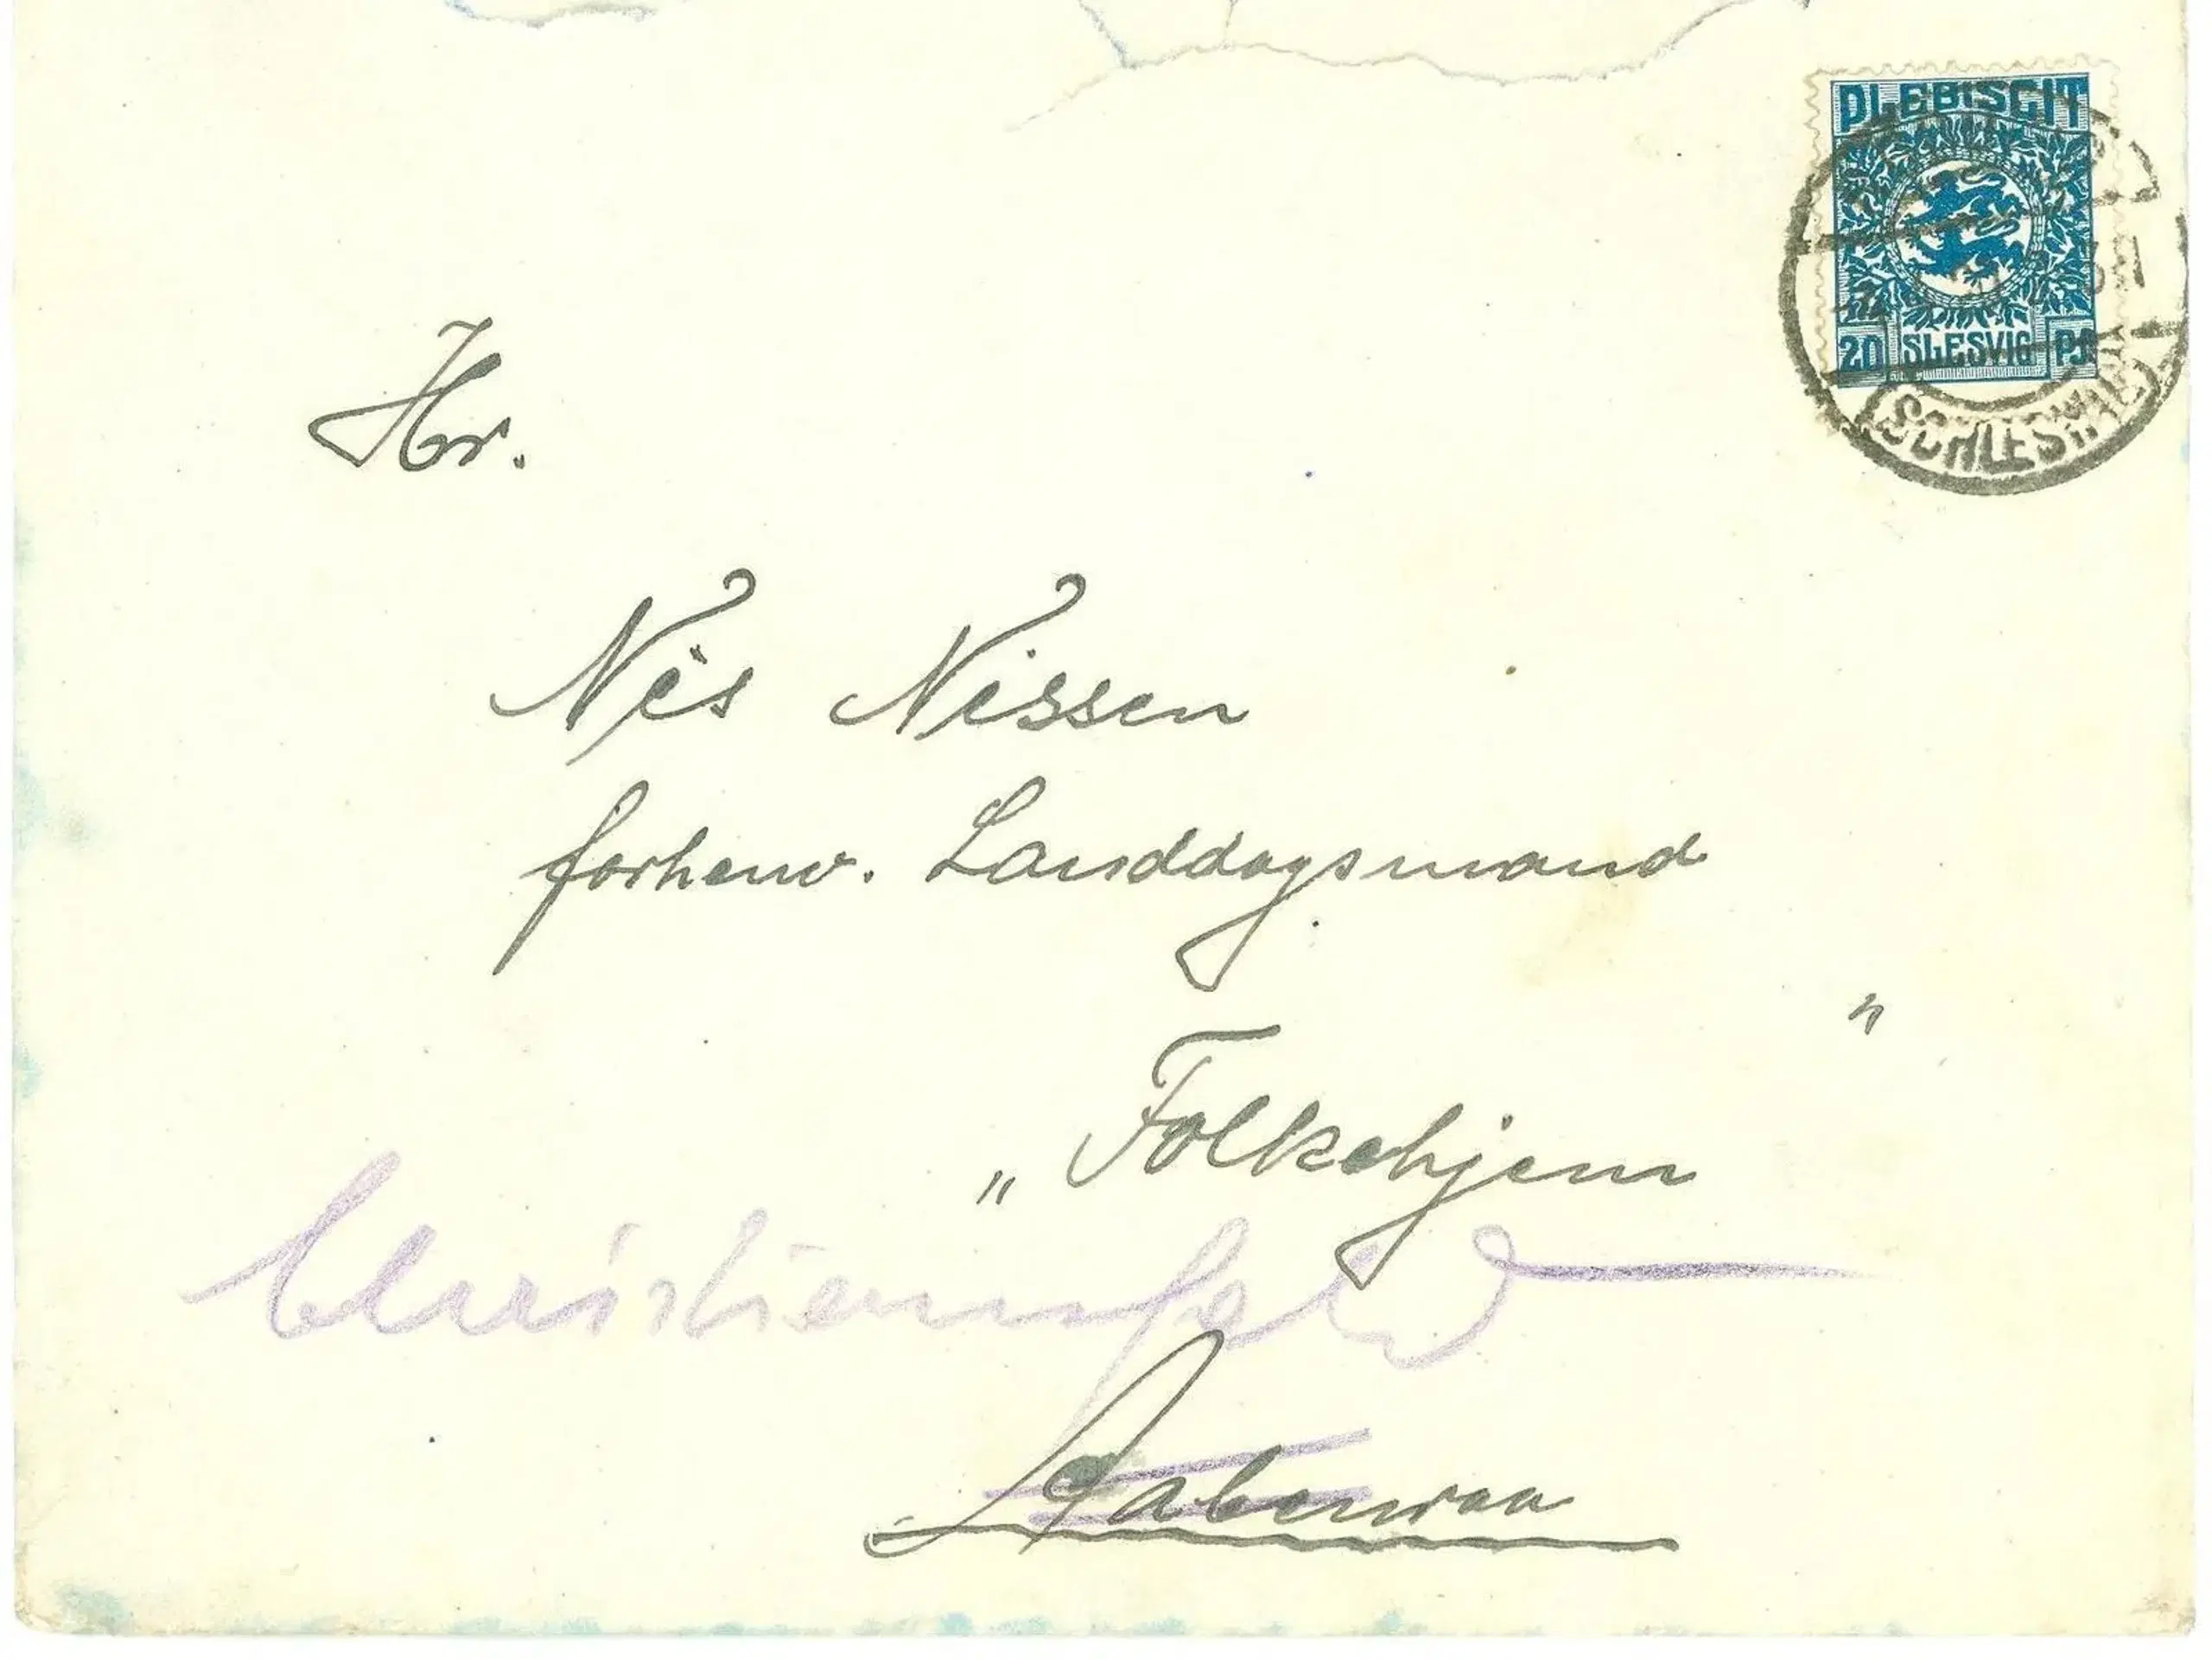 PLEBISCIT
20 SLESVIG PF
SCHLESWIG
Hr.
Nis Nissen
forhenv. Landdagsmand
„Folkehjem"
Christiansfeld
Aabenraa